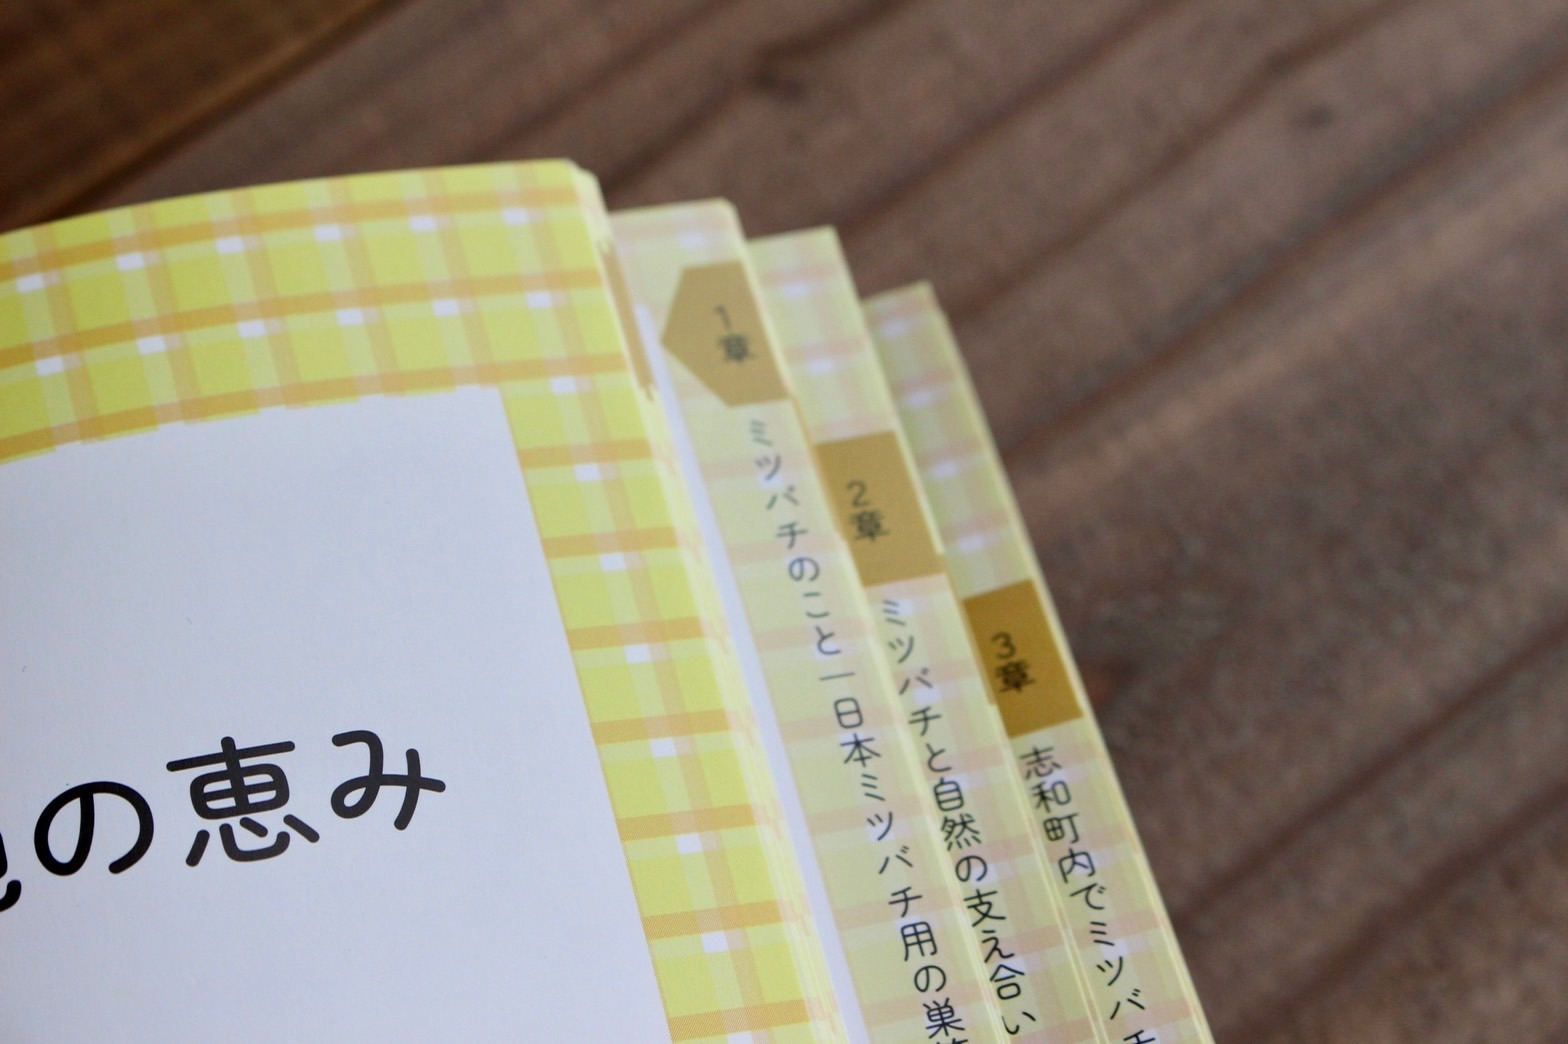 の恵み
1章
ミツバチのこと―日本ミツバチ用の巣
2章
ミツバチと自然の支え合い
3章
志和町内でミツバチ